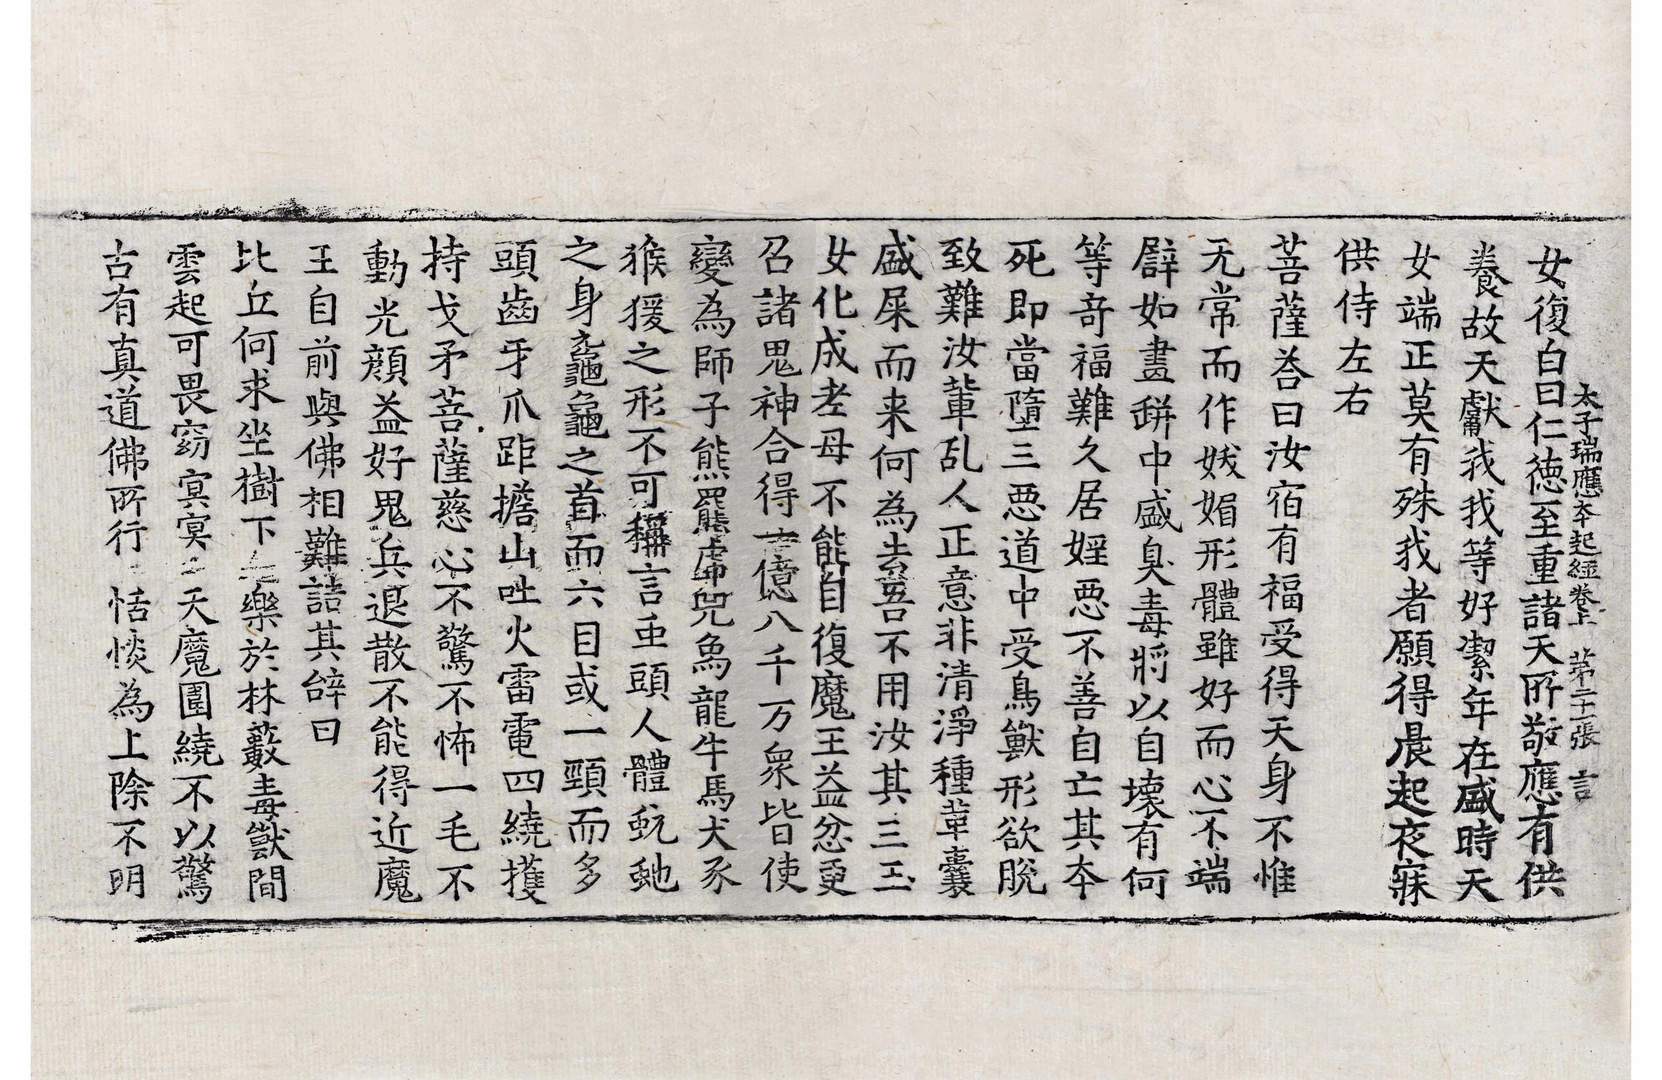 太子瑞應本起經卷上 第二十張 言
女復白曰仁德至重諸天所敬應有供
養故天獻我我等好潔年在盛時天
女端正莫有殊我者願得晨起夜寐
供侍左右
菩薩荅曰汝宿有福受得天身不惟
无常而作妖媚形體雖好而心不端
譬如畫缾中盛臭毒將以自壞有何
等竒福難久居婬惡不善自亡其本
死即當墮三惡道中受鳥獸形欲脫
致難汝輩乱人正意非清淨種革囊
盛屎而来何為去吾不用汝其三玉
女化成老母不能自復魔王益忿更
召諸鬼神合得一億八千万衆皆使
變為師子熊羆虎兕象龍牛馬犬豕
猴猨之形不可稱言虫頭人體虺虵
之身黿龜之首而六目或一頸而多
頭齒牙爪距擔山吐火雷電四繞擭
持戈矛菩薩慈心不驚不怖一毛不
動光顏益好鬼兵退散不能得近魔
王自前與佛相難詰其辝曰
比丘何求坐樹下 樂於林藪毒獸間
雲起可畏窈冥冥 天魔圍繞不以驚
古有真道佛所行 恬惔為上除不明